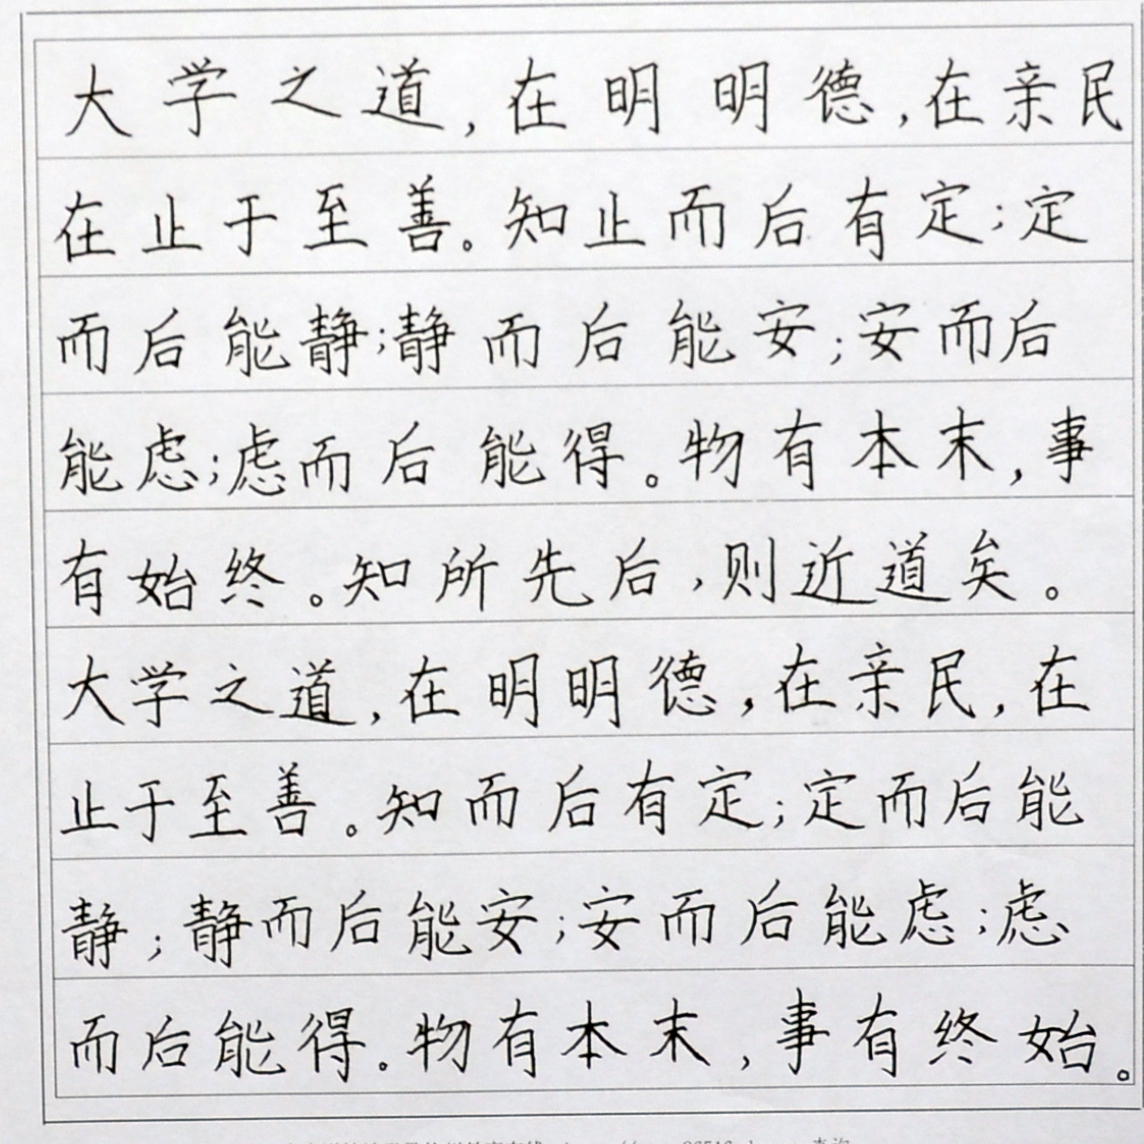 大学之道,在明明德,在亲民
在止于至善。知止而后有定;定
而后能静;静而后能安;安而后
能虑;虑而后能得。物有本末,事
有始终。知所先后,则近道矣。
大学之道,在明明德,在亲民,在
止于至善。知而后有定;定而后能
静;静而后能安;安而后能虑;虑
而后能得。物有本末,事有终始。